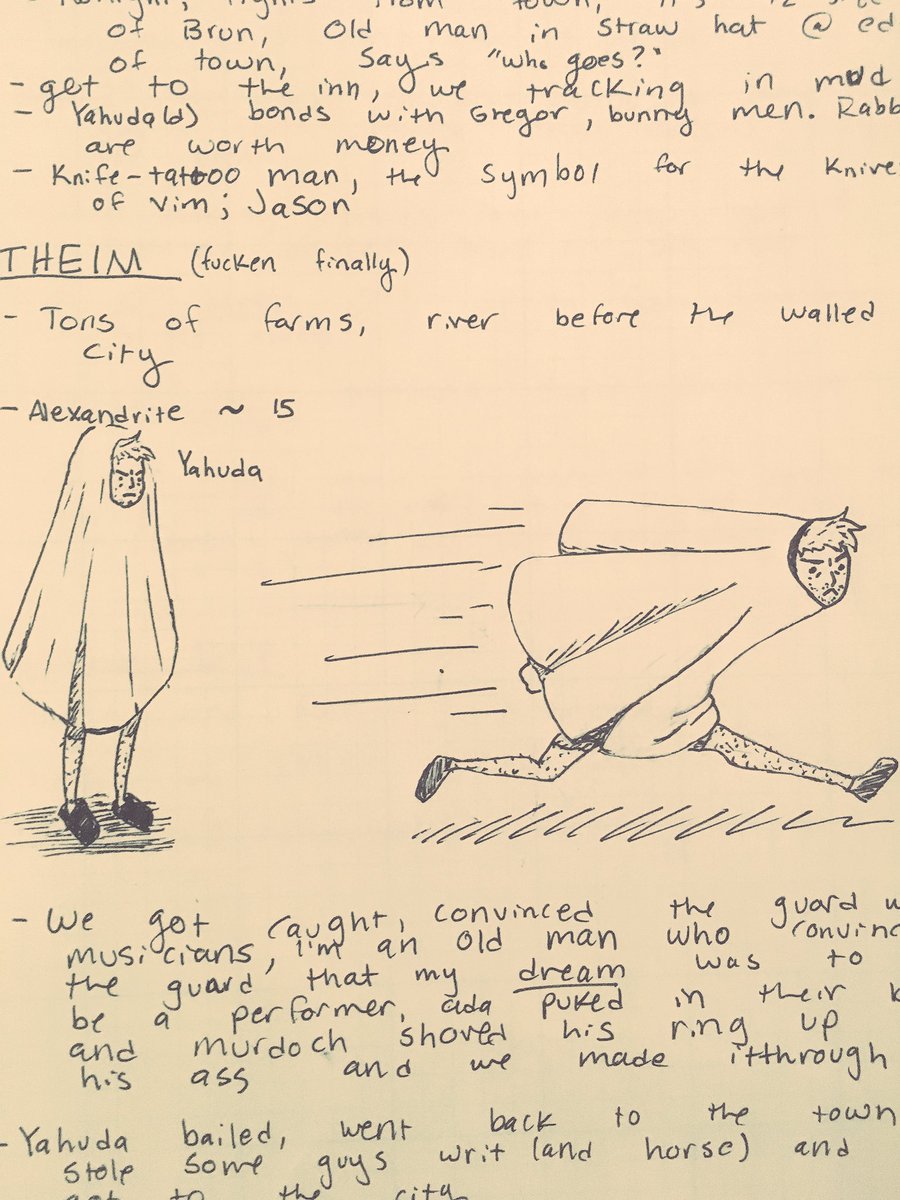 of Brun, Old man in Straw hat @ ed
of town, Says "who goes?"
- get to the inn, we tracking in mud
- Yahuda(d) bonds with Gregor, bunny men. Rabb
are worth money
- Knife-tattoo man, the symbol for the Knive
of Vim; Jason
THEIM (fucken finally)
- Tons of farms, river before the walled
City
- Alexandrite ~ 15
Yahuda
- We got caught, convinced the guard w
musicians, I'm an old man who convinc
the guard that my dream was to
be a performer, ada puked in their
and murdoch shoved his ring up
his ass and we made itthrough
- Yahuda bailed, went back to the town
Stole some guys writ (and horse) and
got to the city